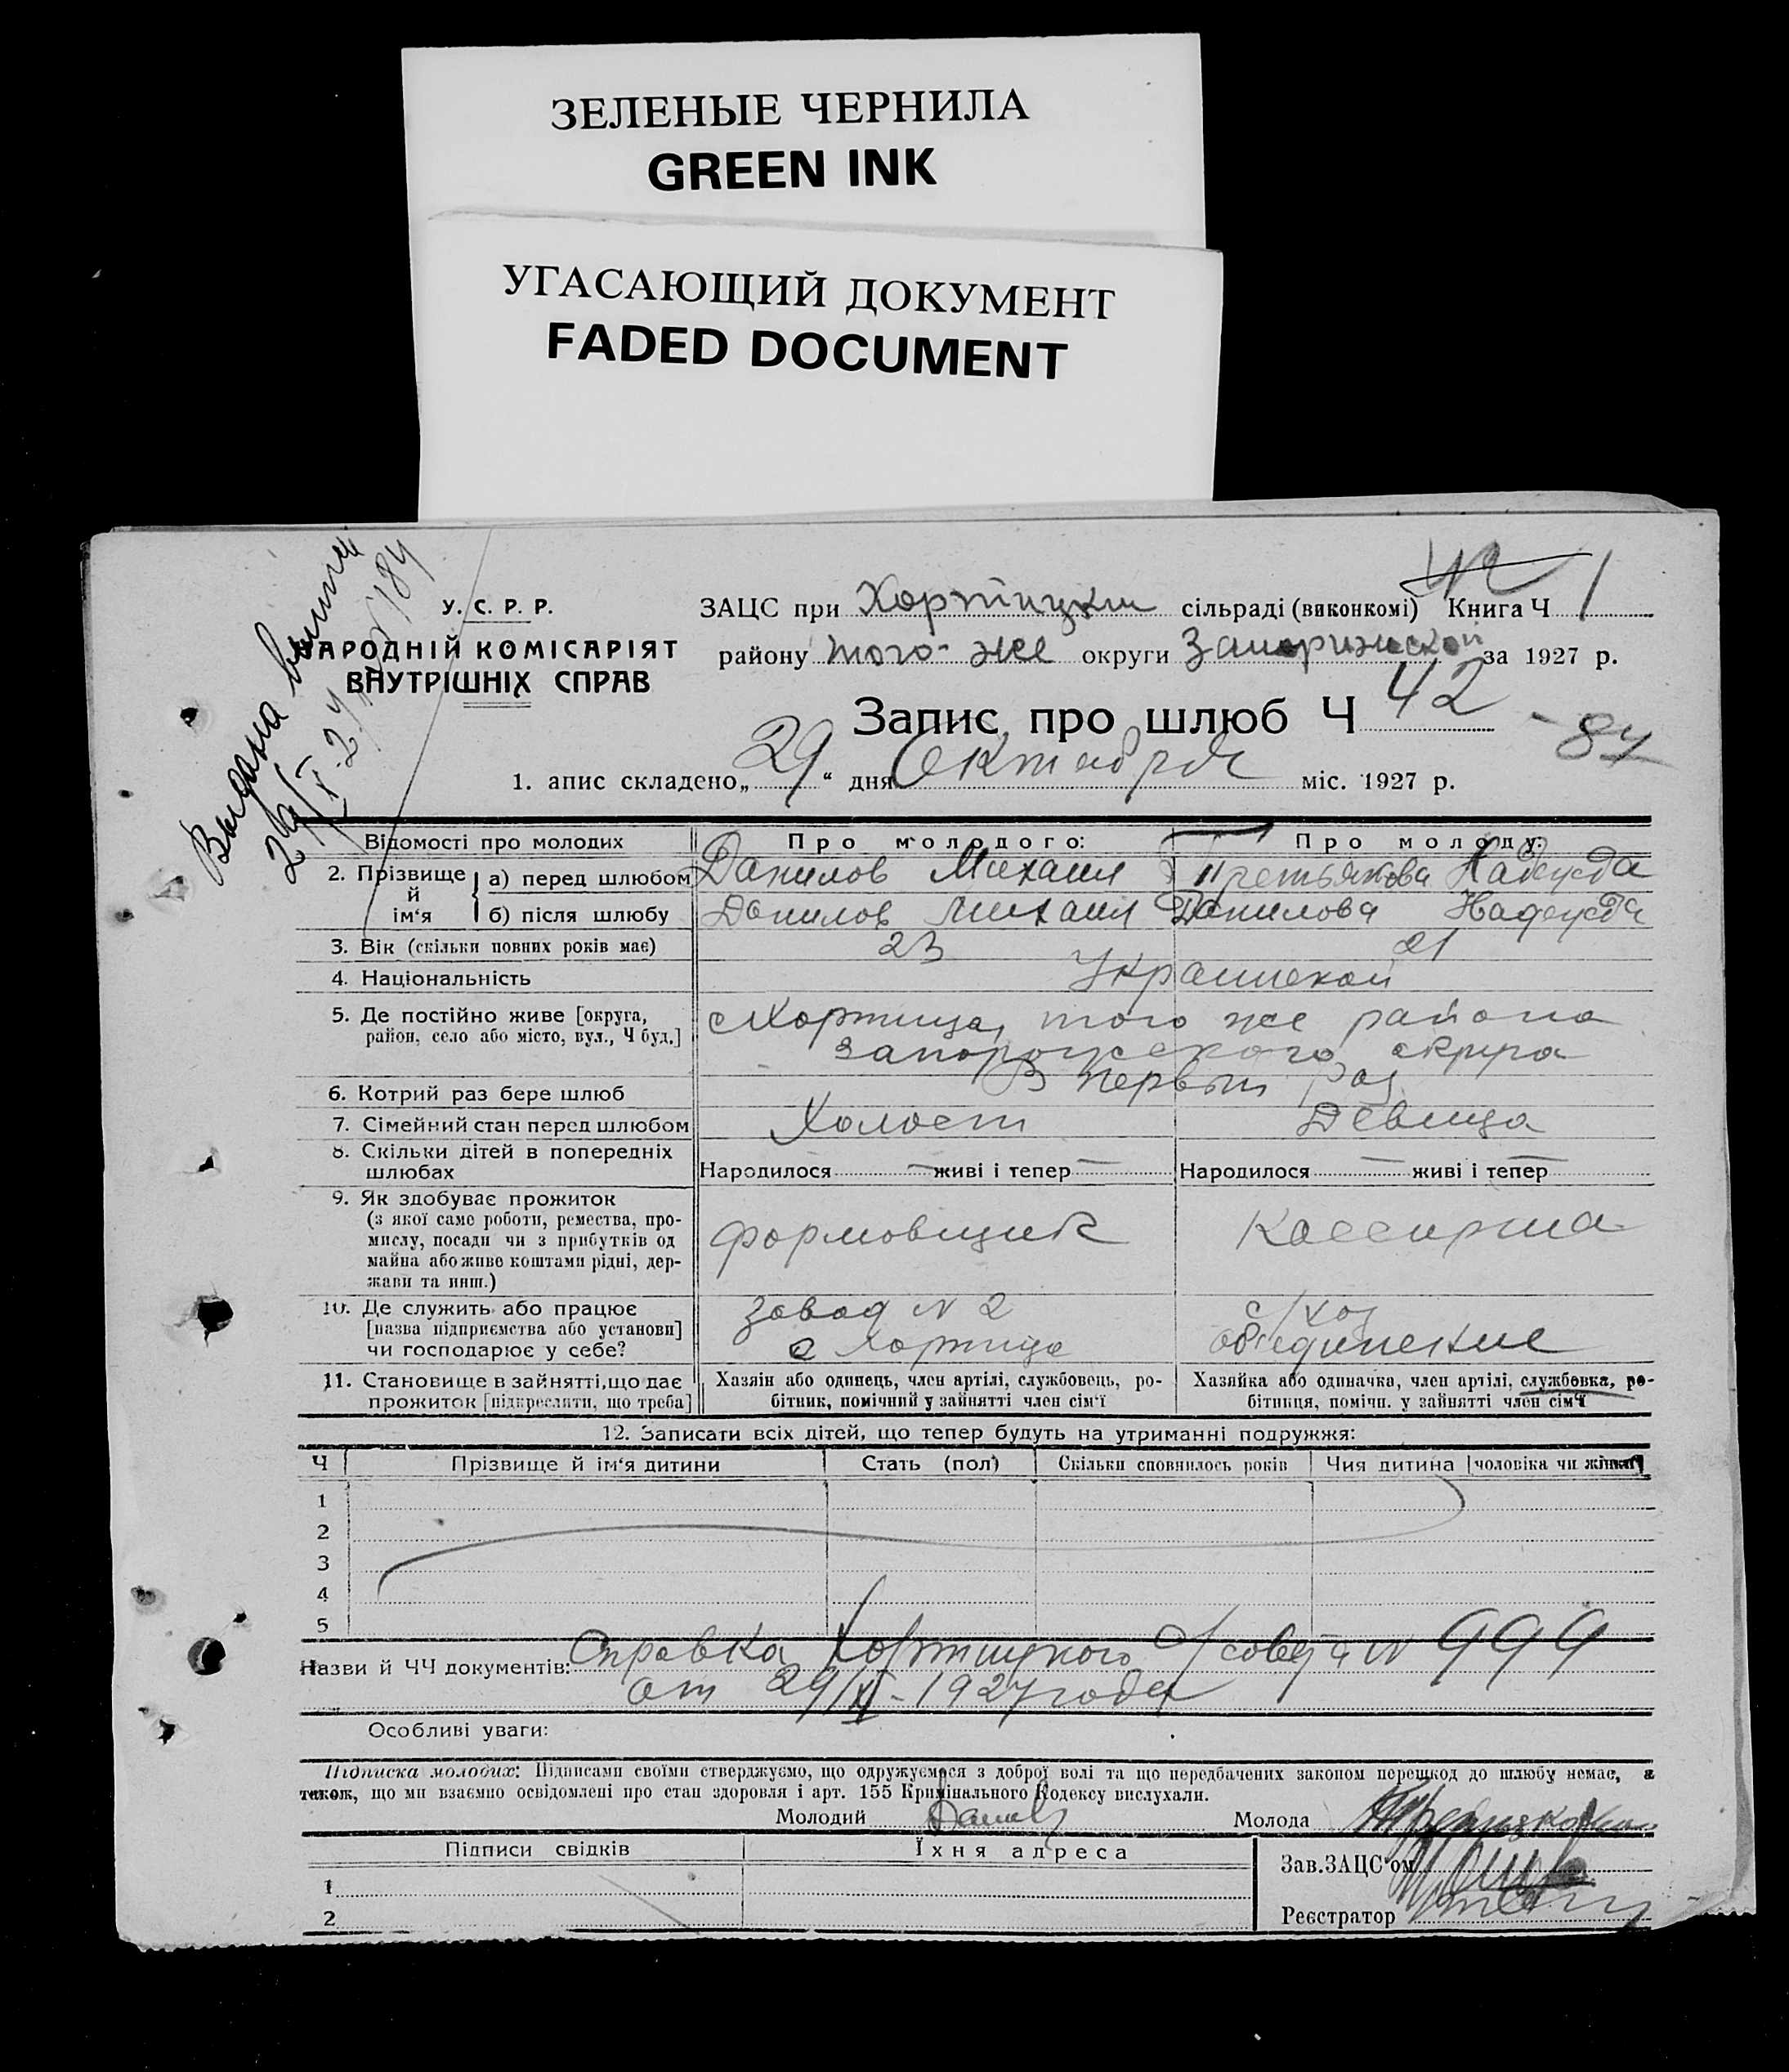 ЗЕЛЕНЫЕ ЧЕРНИЛА
GREEN INK
УГАСАЮЩИЙ ДОКУМЕНТ
FADED DOCUMENT
Выдана выпись
У. С. Р. Р.
НАРОДНІЙ КОМІСАРІЯТ
ВНУТРІШНІХ СПРАВ
ЗАЦС при Хортицким сільраді (виконкомі) Книга Ч 1
району того-же округи Запорижской за 1927 р.
Запис про шлюб Ч 42
- 84
1. апис складено „29“ дня Октября міс. 1927 р.
Відомості про молодих Про молодого: Про молоду:
2. Прізвище й ім‘я а) перед шлюбом Данилов Михаил Третьякова Надежда
б) після шлюбу Данилов Михаил Данилова Надежда
3. Вік (скільки повних років має) 23 21
4. Національність
5. Де постійно живе [округа, район, село або місто, вул., Ч буд.] с Хортица, того же района
Запорожского округа
6. Котрий раз бере шлюб В первый раз
7. Сімейний стан перед шлюбом Холост Девица
8. Скільки дітей в попередніх шлюбах Народилося — живі і тепер — Народилося — живі і тепер —
9. Як здобуває прожиток
(з якої саме роботи, ремества, про-
мислу, посади чи з прибутків од
майна або живе коштами рідні, дер-
жави та инш.)
формовщик Кассирша
10. Де служить або працює
[назва підприємства або установи]
чи господарює у себе?
завод N 2
с Хортица
с/хоз
объединение
11. Становище в зайнятті, що дає
прожиток [підкреслити, що треба]
Хазяін або одинець, член артілі, службовець, ро-
бітник, помічний у зайнятті член сім‘ї
Хазяйка або одиначка, член артілі, службовка, ро-
бітниця, помічн. у зайнятті член сім‘ї
12. Записати всіх дітей, що тепер будуть на утриманні подружжя:
Ч Прізвище й ім‘я дитини Стать (пол) Скільки сповнилось років Чия дитина чоловіка чи жінки
1
2
3
4
5
Назви й ЧЧ документів: Справка Хортицкого с/совета N 999
от 29/X - 1927 года
Особливі уваги:
Підписка молодих: Підписами своїми стверджуємо, що одружуємося з доброї волі та що передбачених законом перешкод до шлюбу немає, а
також, що ми взаємно освідомлені про стан здоровля і арт. 155 Кримінального Кодексу вислухали.
Молодий Молода
Підписи свідків Їхня адреса
Зав. ЗАЦС‘ом
1
2
Реєстратор